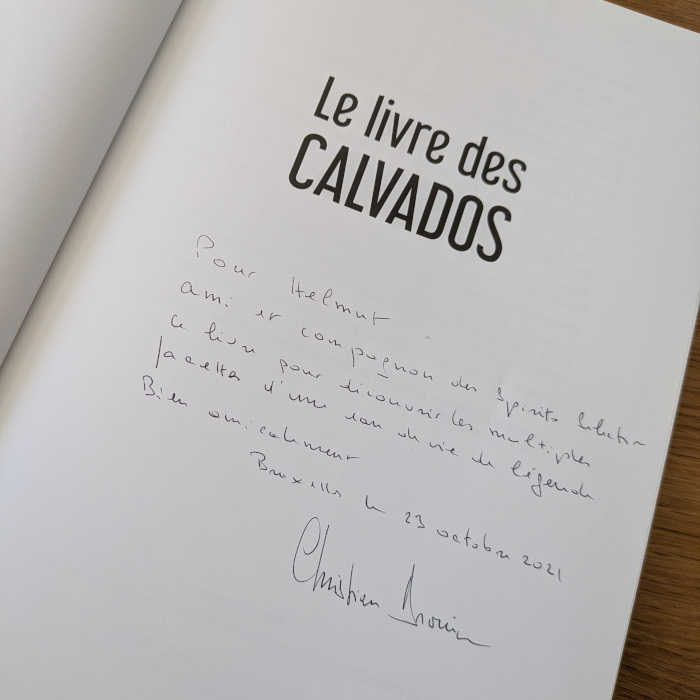 Le livre des
CALVADOS
Pour Helmut
ami et compagnon des Spirits Selection
ce livre pour découvrir les multiples
facettes d'une eau de vie de légende
Bien amicalement
Bruxelles le 23 octobre 2021
Christian Drouin